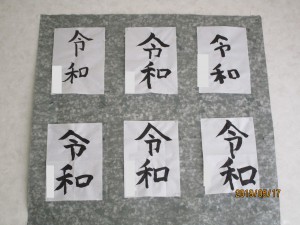 令和
令和
令和
令和
令和
令和